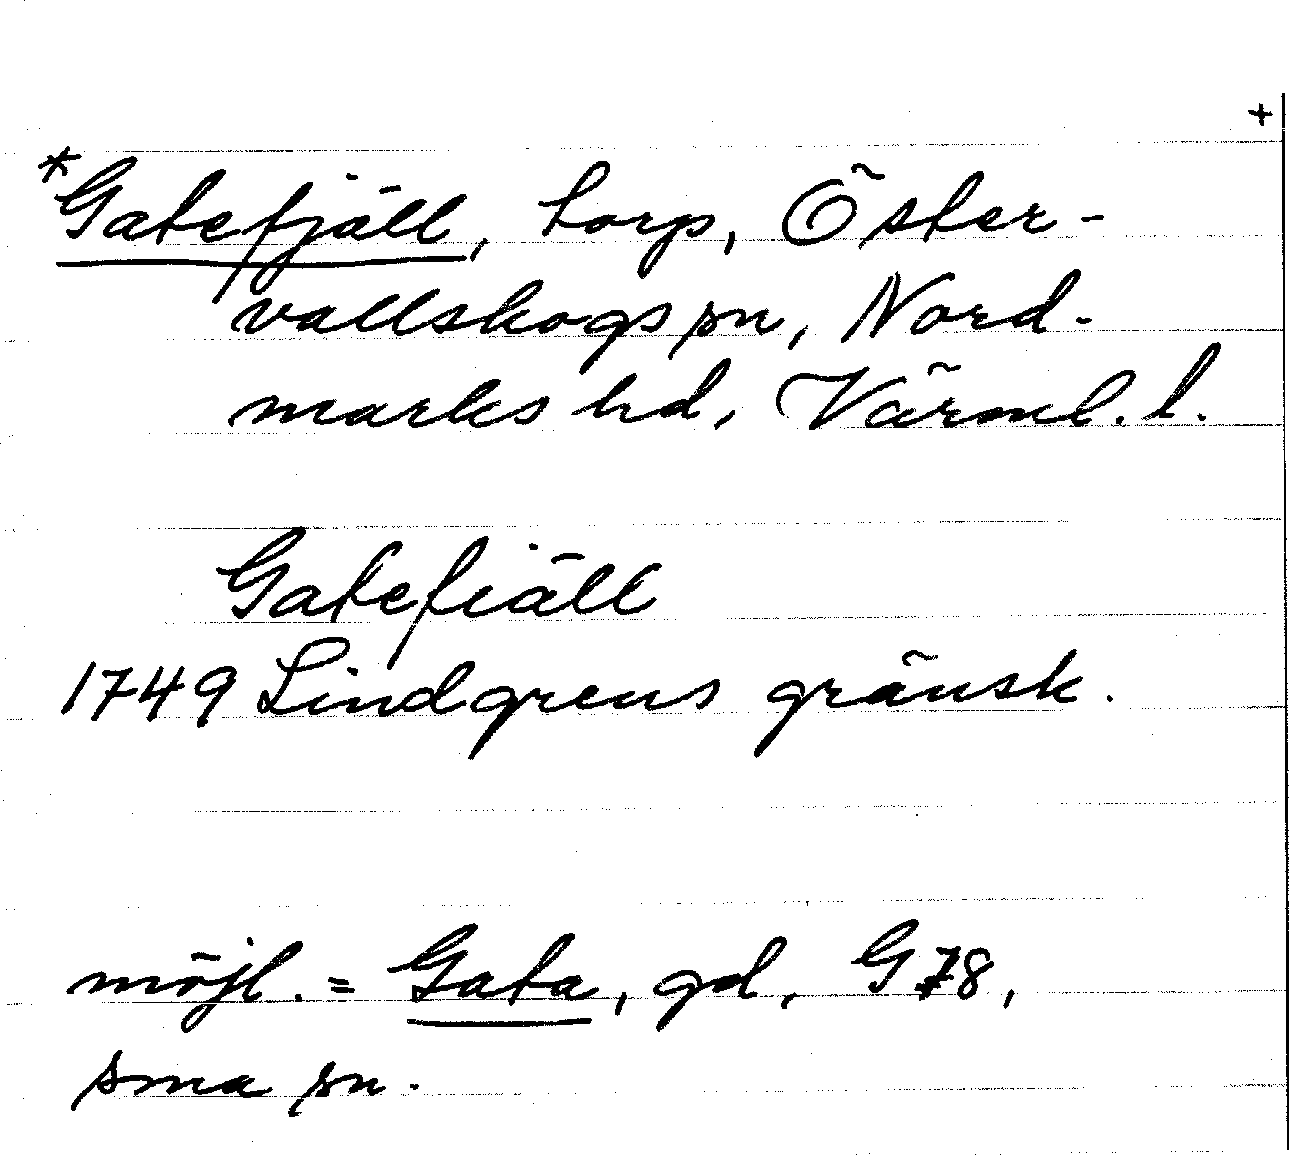 +
*Gatefjäll, torp, Öster-
vallskogs sn, Nord-
marks hd, Värml. l.
Gatefiäll
1749 Lindgrens gränsk.
möjl. = Gata, gd, G 78,
sma sn.